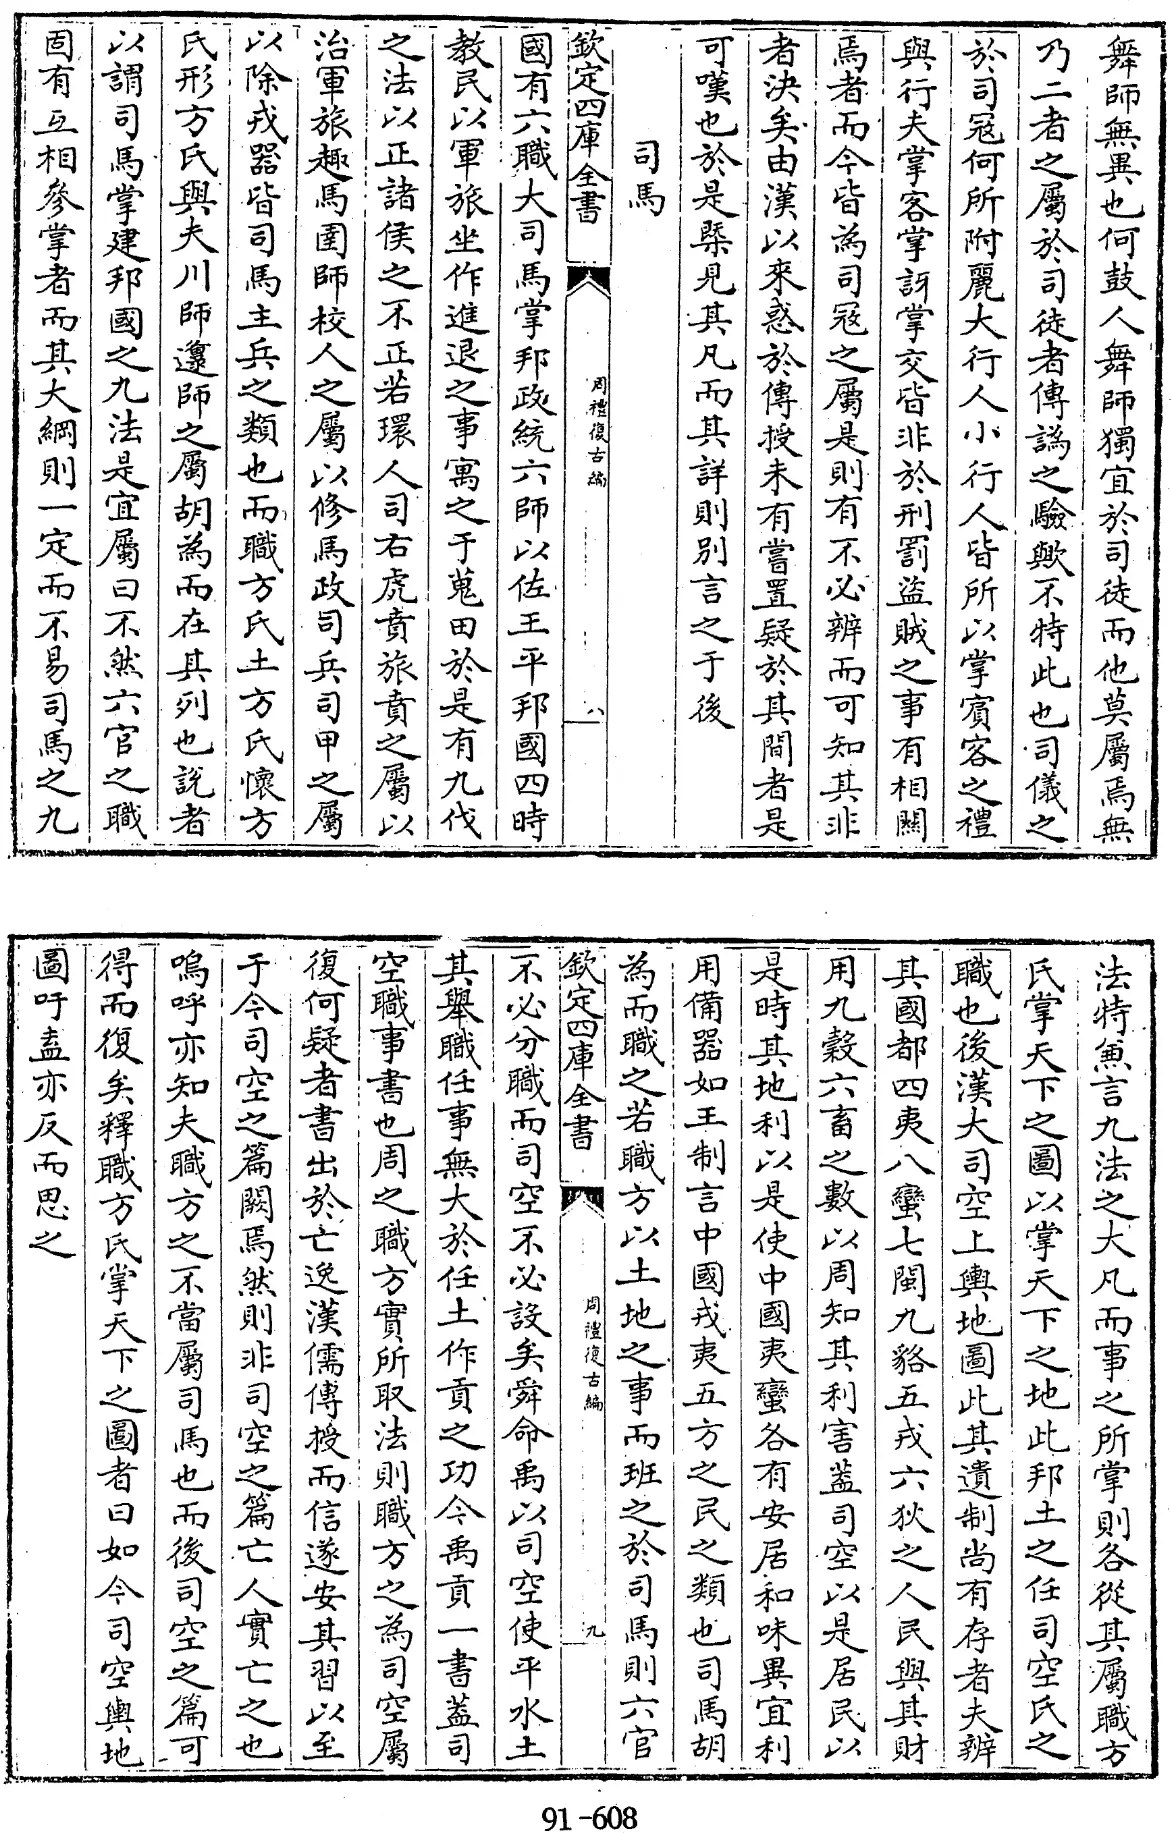 舞師無異也何鼓人舞師獨宜於司徒而他莫屬焉無
乃二者之屬於司徒者傳譌之驗歟不特此也司儀之
於司冦何所附麗大行人小行人皆所以掌賔客之禮
與行夫掌客掌訝掌交皆非於刑罰盜賊之事有相闗
焉者而今皆為司冦之屬是則有不必辨而可知其非
者決矣由漢以來惑於傳授未有嘗置疑於其間者是
可嘆也於是槩見其凡而其詳則別言之于後
司馬
欽定四庫全書
周禮復古編
八
國有六職大司馬掌邦政統六師以佐王平邦國四時
教民以軍旅坐作進退之事寓之于蒐田於是有九伐
之法以正諸侯之不正若環人司右虎賁旅賁之屬以
治軍旅趣馬圉師校人之屬以修馬政司兵司甲之屬
以除戎器皆司馬主兵之類也而職方氏土方氏懷方
氏形方氏與夫川師邍師之屬胡為而在其列也說者
以謂司馬掌建邦國之九法是宜屬曰不然六官之職
固有互相參掌者而其大綱則一定而不易司馬之九
法特兼言九法之大凡而事之所掌則各從其屬職方
氏掌天下之圖以掌天下之地此邦土之任司空氏之
職也後漢大司空上輿地圖此其遺制尚有存者夫辨
其國都四夷八蠻七閩九貉五戎六狄之人民與其財
用九穀六畜之數以周知其利害葢司空以是居民以
是時其地利以是使中國夷蠻各有安居和味異宜利
用備器如王制言中國戎夷五方之民之類也司馬胡
為而職之若職方以土地之事而班之於司馬則六官
欽定四庫全書
周禮復古編
九
不必分職而司空不必設矣舜命禹以司空使平水土
其舉職任事無大於任土作貢之功今禹貢一書葢司
空職事書也周之職方實所取法則職方之為司空屬
復何疑者書出於亡逸漢儒傳授而信遂安其習以至
于今司空之篇闕焉然則非司空之篇亡人實亡之也
嗚呼亦知夫職方之不當屬司馬也而後司空之篇可
得而復矣釋職方氏掌天下之圖者曰如今司空輿地
圖吁盍亦反而思之
91-608